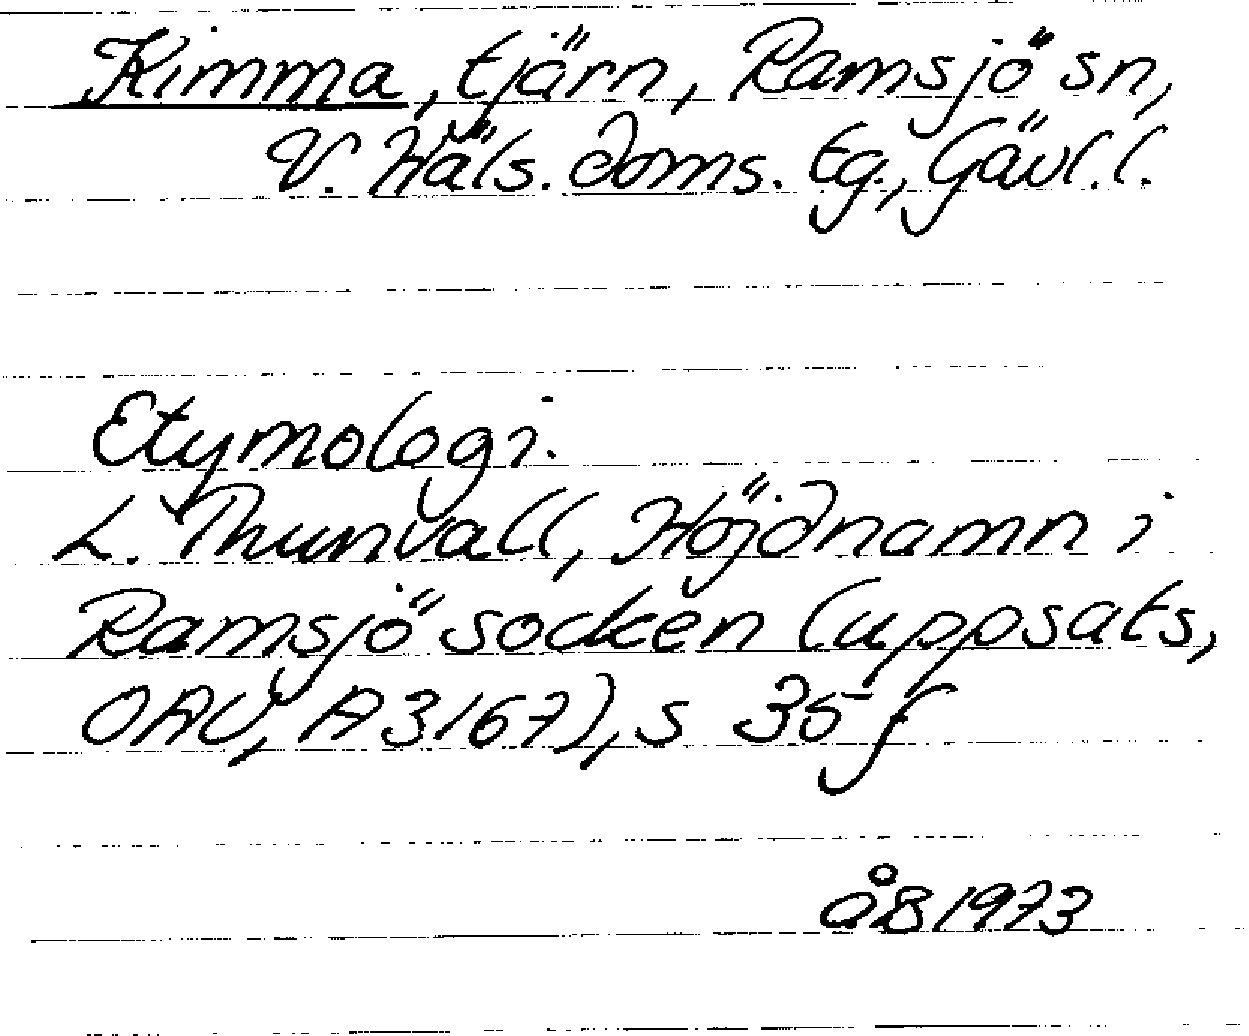 Kimma, tjärn, Ramsjö sn,
V. Häls. doms. tg., Gävl. l.
Etymologi.
L. Thunvall, Höjdnamn i
Ramsjö socken (uppsats,
OAU, A3167), s 35 f
åB 1973